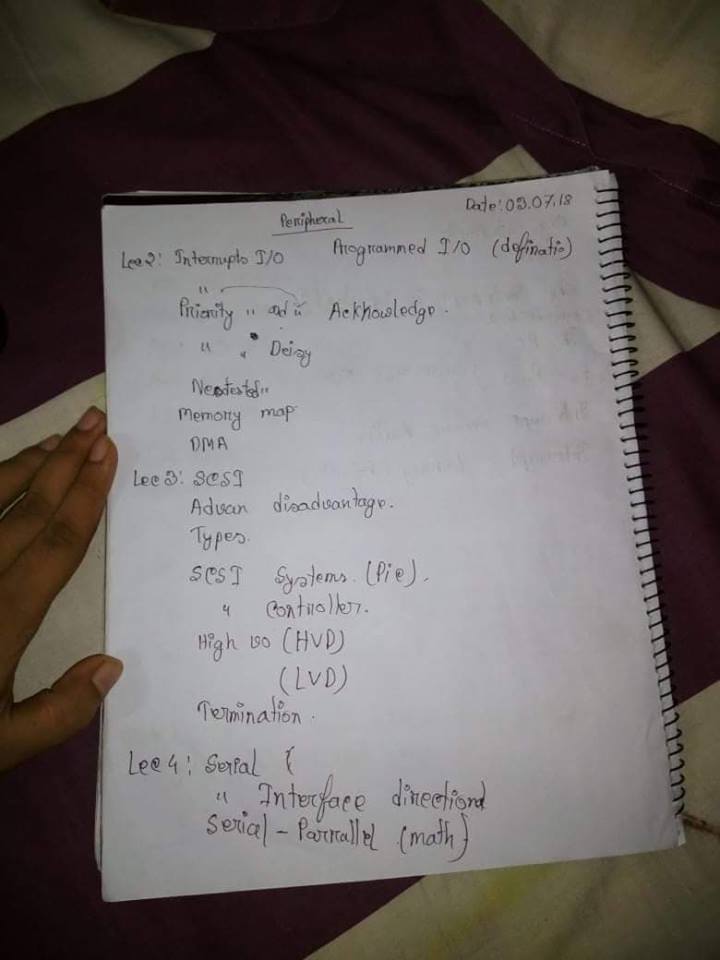 Peripheral
Date: 03.07.18
Lec 2: Interrupts I/O Programmed I/O (definatio)
"
Priority " and " Acknowledge.
" " Deizy
Memory map
DMA
Lec 3: SCSI
Advan disadvantage.
Types.
SCSI Systems. (Pic).
" Controller.
High vo (HVD)
(LVD)
Termination.
Lec 4: Serial (
" Interface directiond
Serial - Parrallel (math)